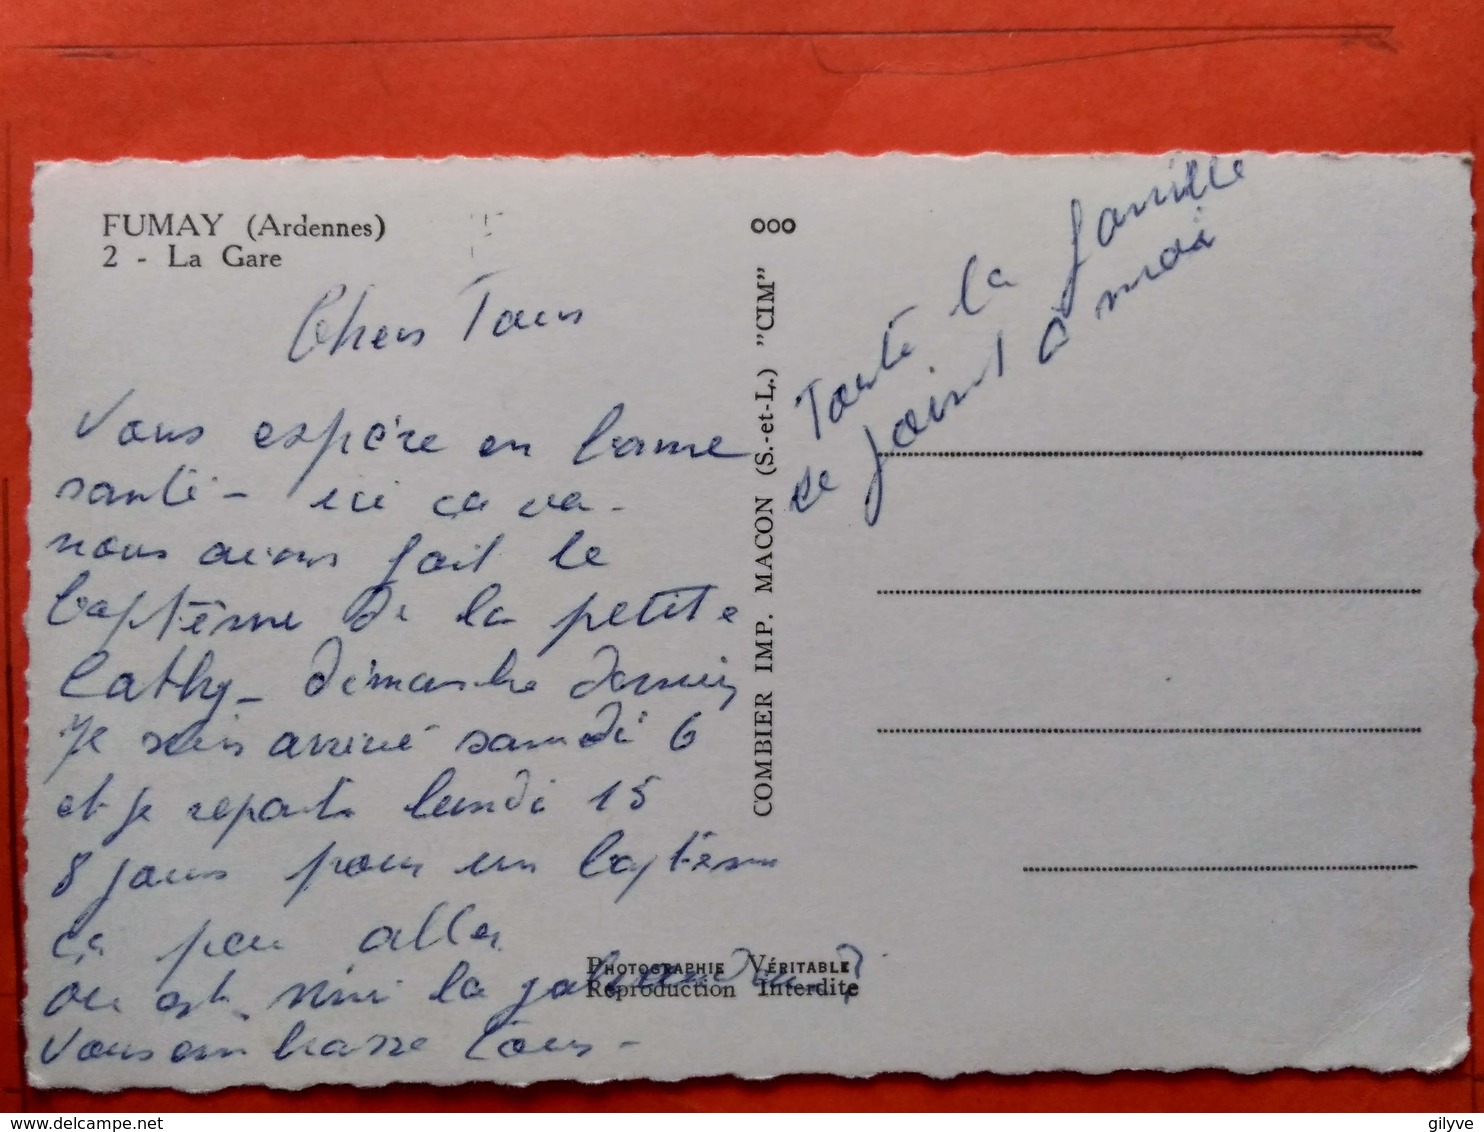 FUMAY (Ardennes)
2 - La Gare
Chers Tous
Vous espère en bonne
santé - ici ça va -
nous avons fait le
baptême de la petite
Cathy - dimanche dernier
Je suis arrivé samedi 6
et je repart lundi 15
8 jours pour un baptême
ça peu aller
ou est
la
vous embrasse tous -
OOO
COMBIER IMP. MACON (S.-et-L.) "CIM"
Toute la famille
se joint a moi
PHOTOGRAPHIE VÉRITABLE
Reproduction Interdite
delcampe.net
gilyve